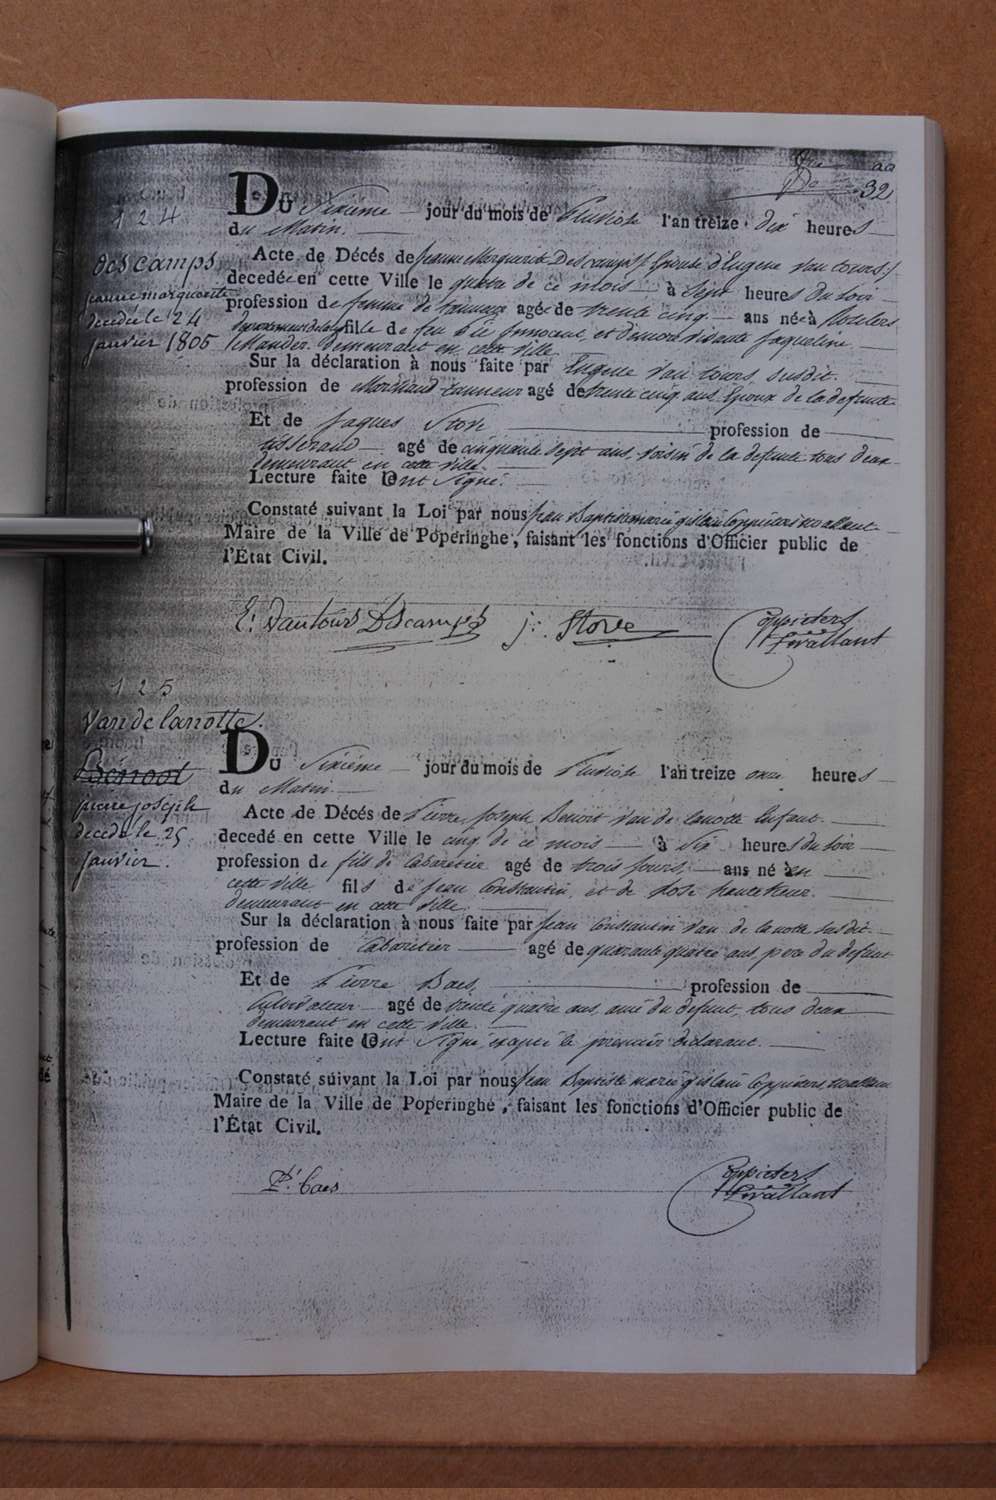 32
124
Descamps
jeanne marguerite
decedée le 24
janvier 1805
Du Sixième jour du mois de Pluviose l'an treize dix heures
du Matin.
Acte de Décés de Jeanne Marguerite Descamps Epouse d'Eugene Van tours
decedée en cette Ville le quatre de ce mois à Sept heures du soir
profession de femme de tanneur agée de trente cinq ans née à
fille de feu et
demeurant en cette ville
Sur la déclaration à nous faite par Eugene Van tours, susdit
profession de Marchand tanneur agé de trente cinq ans Epoux de la defunte
Et de Jaques Stove profession de
tisserand agé de cinquante sept ans, voisin de la defunte tous deux
demeurant en cette ville.
Lecture faite Ont Signé.
Constaté suivant la Loi par nous Jean Baptiste marie gislain Coppieters wallant
Maire de la Ville de Poperinghe, faisant les fonctions d'Officier public de
l'État Civil.
E. Vantours Descamps j. Stove Coppieters
125
Van de lanotte.
Benoot
pierre joseph
decedé le 25
janvier.
Du Sixième jour du mois de Pluviose l'an treize onze heures
du Matin.
Acte de Décés de Pierre Joseph Benoit Van de lanotte Enfant
decedé en cette Ville le cinq de ce mois à Six heures du soir
profession de fils de cabaretier agé de trois jours, ans né en
cette ville fils de Jean Constantin, et de
demeurant en cette ville.
Sur la déclaration à nous faite par Jean Constantin Van de lanotte susdit
profession de Cabaretier agé de quarante quatre ans, pere du defunt
Et de Pierre Baes, profession de
Cultivateur agé de trente quatre ans, ami du defunt, tous deux
demeurant en cette ville.
Lecture faite Ont Signé, excepté le premier declarant.
Constaté suivant la Loi par nous Jean Baptiste marie gislain Coppieters wallant
Maire de la Ville de Poperinghe, faisant les fonctions d'Officier public de
l'État Civil.
P. Baes Coppieters